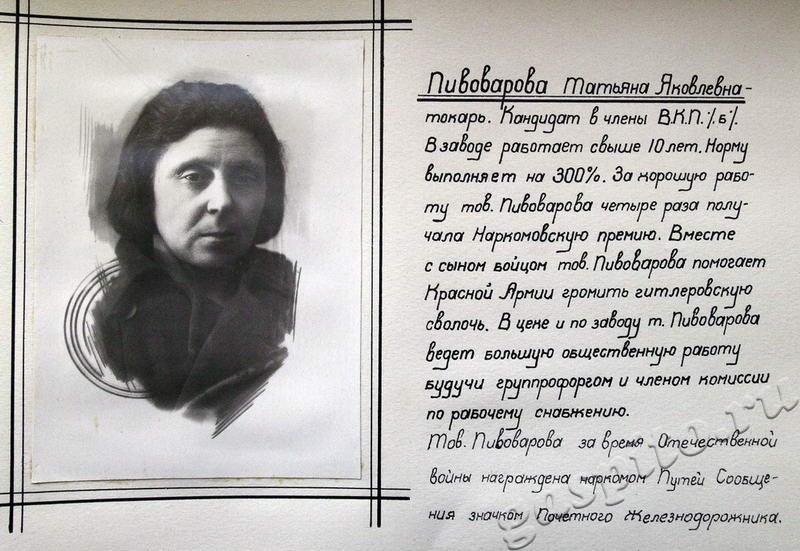 Пивоварова Татьяна Яковлевна-
токарь. Кандидат в члены В.К.П.⁒б⁒.
В заводе работает свыше 10 лет. Норму
выполняет на 300%. За хорошую рабо-
ту тов. Пивоварова четыре раза полу-
чала Наркомовскую премию. Вместе
с сыном бойцом тов. Пивоварова помогает
Красной Армии громить гитлеровскую
сволочь. В цехе и по заводу т. Пивоварова
ведет большую общественную работу
будучи группрофоргом и членом комиссии
по рабочему снабжению.
Тов. Пивоварова за время Отечественной
войны награждена наркомом Путей Сообще-
ния значком Почетного Железнодорожника.
gaspito.ru